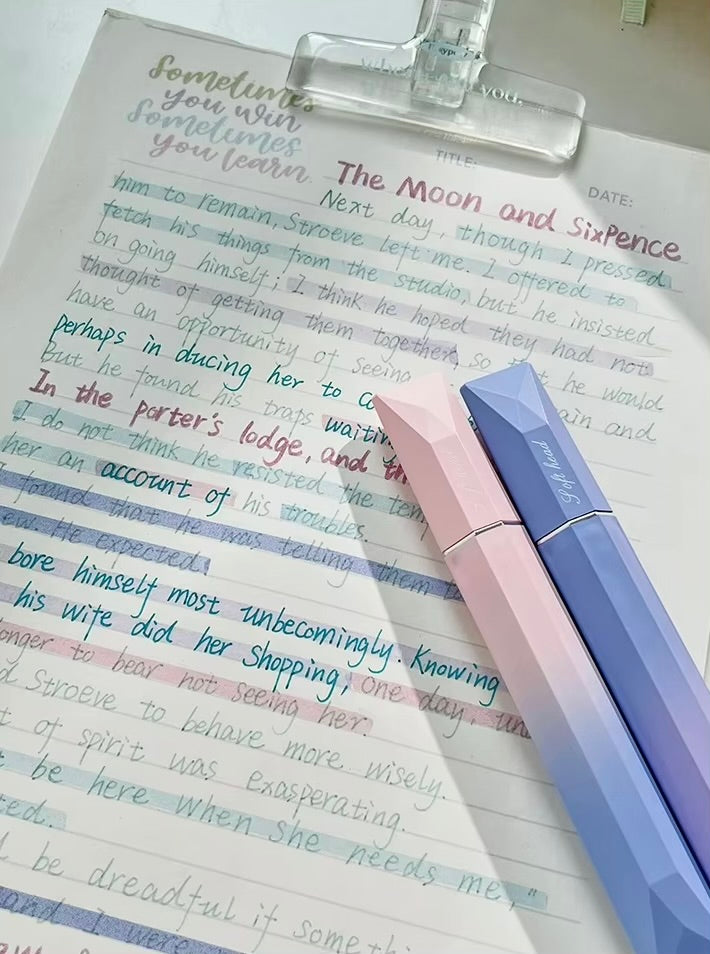 Sometimes
you win
Sometimes
you learn.
you.
TITLE:
DATE:
The Moon and SixPence
Next day, though I pressed
him to remain, Stroeve left me. I offered to
fetch his things from the studio, but he insisted
on going himself; I think he hoped they had not
thought of getting them together, so he would
have an opportunity of seeing ain and
perhaps in ducing her to
But he found his traps waiting
In the porter's lodge, and
I do not think he resisted the
her an account of his troubles.
I found that he was telling them
ew. He expected
bore himself most unbecomingly. Knowing
his wife did her shopping, one day,
onger to bear not seeing her
Stroeve to behave more wisely.
t of spirit was exasperating.
be here when she needs me,"
ted.
be dreadful if somethi
and I were
Soft head